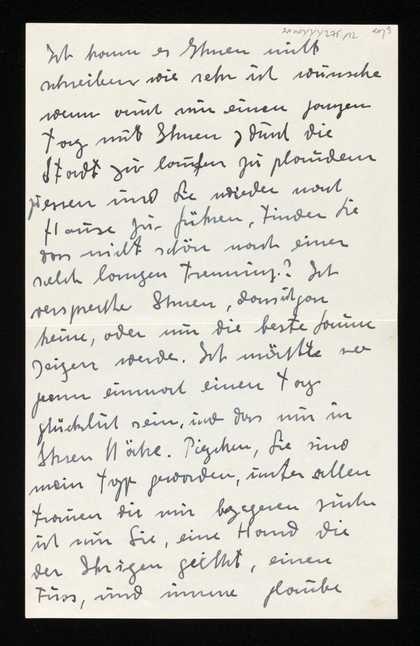 Ich kann es Ihnen nicht
schreiben wie sehr ich wünsche
wenn auch nur einen ganzen
Tag mit Ihnen durch die
Stadt zu laufen zu plaudern
essen und Sie wieder nach
Hause zu führen, Finden Sie
das nicht schön nach einer
solch langen Trennung? Ich
verspreche Ihnen, dass ich gar
keine, oder nur die beste Laune
zeigen werde. Ich möchte
einmal einen Tag
glücklich sein, und das nur in
Ihrer Nähe. Sie sind
mein Typ geworden, unter allen
Frauen die mir begegnen suche
ich nur Sie, eine Hand die
der Ihrigen gleicht, einen
Fuss, und immer glaube